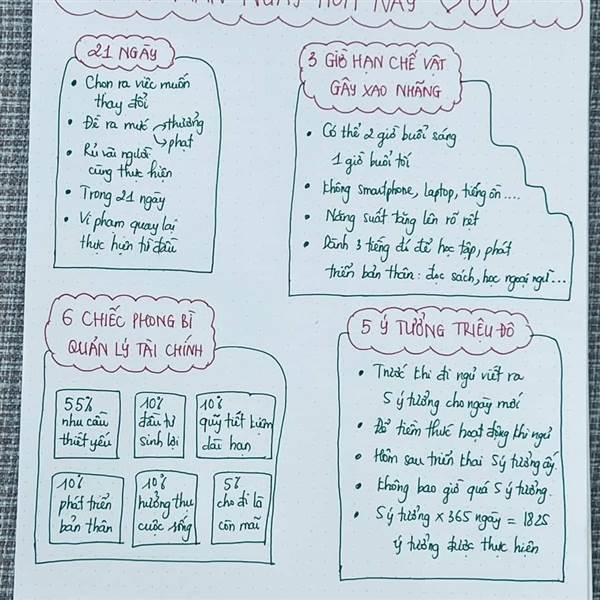 NGAY HÔM NAY
21 NGÀY
• Chọn ra việc muốn
thay đổi
• Đề ra mức thưởng
phạt
• Rủ vài người
cùng thực hiện
• Trong 21 ngày
• Vi phạm quay lại
thực hiện từ đầu
3 GIỜ HẠN CHẾ VẬT
GÂY XAO NHÃNG
• Có thể 2 giờ buổi sáng
1 giờ buổi tối
• Không smartphone, laptop, tiếng ồn....
• Năng suất tăng lên rõ rệt
• Dành 3 tiếng đó để học tập, phát
triển bản thân: đọc sách, học ngoại ngữ...
6 CHIẾC PHONG BÌ
QUẢN LÝ TÀI CHÍNH
55%
nhu cầu
thiết yếu
10%
đầu tư
sinh lợi
10%
quỹ tiết kiệm
dài hạn
10%
phát triển
bản thân
10%
hưởng thụ
cuộc sống
5%
cho đi là
còn mãi
5 Ý TƯỞNG TRIỆU ĐÔ
• Trước khi đi ngủ viết ra
5 ý tưởng cho ngày mới
• Để tiềm thức hoạt động khi ngủ
• Hôm sau triển khai 5 ý tưởng ấy.
• Không bao giờ quá 5 ý tưởng.
• 5 ý tưởng x 365 ngày = 1825
ý tưởng được thực hiện